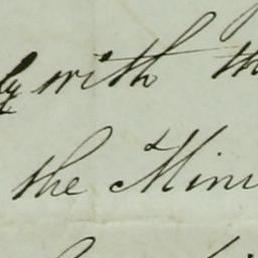 with th
the Mini